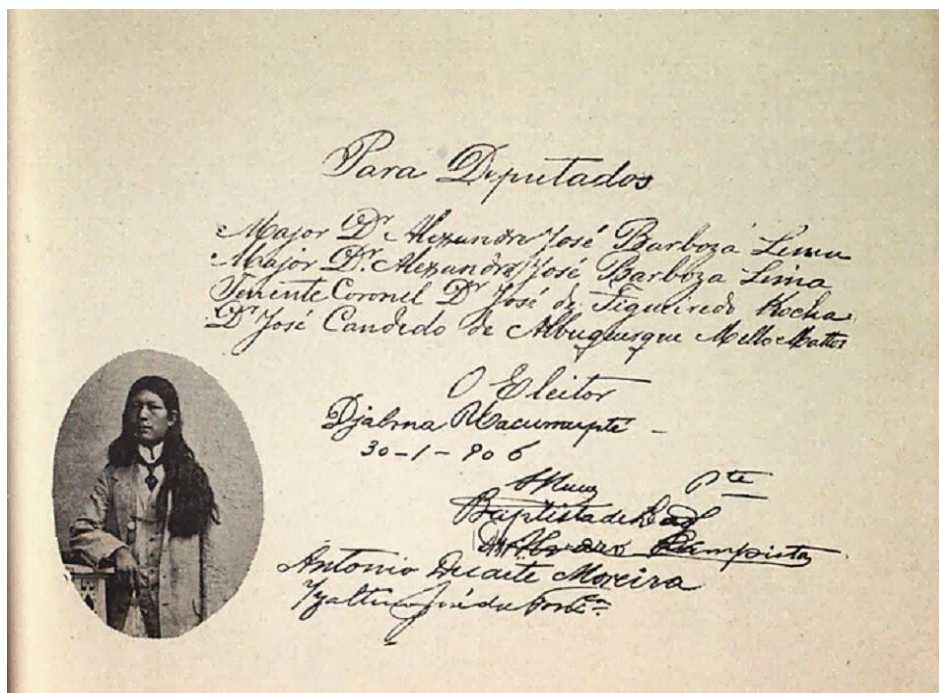 Para Deputados
Major Dr Alexandre José Barboza Lima
Major Dr. Alexandre José Barboza Lima
Tenente Coronel Dr José de Figueiredo Rocha
Dr José Candido de Albuquerque Mello Mattos
O Eleitor
Djalma
30-1-906
Pte
Baptista de
Campista
Antonio Duarte Moreira